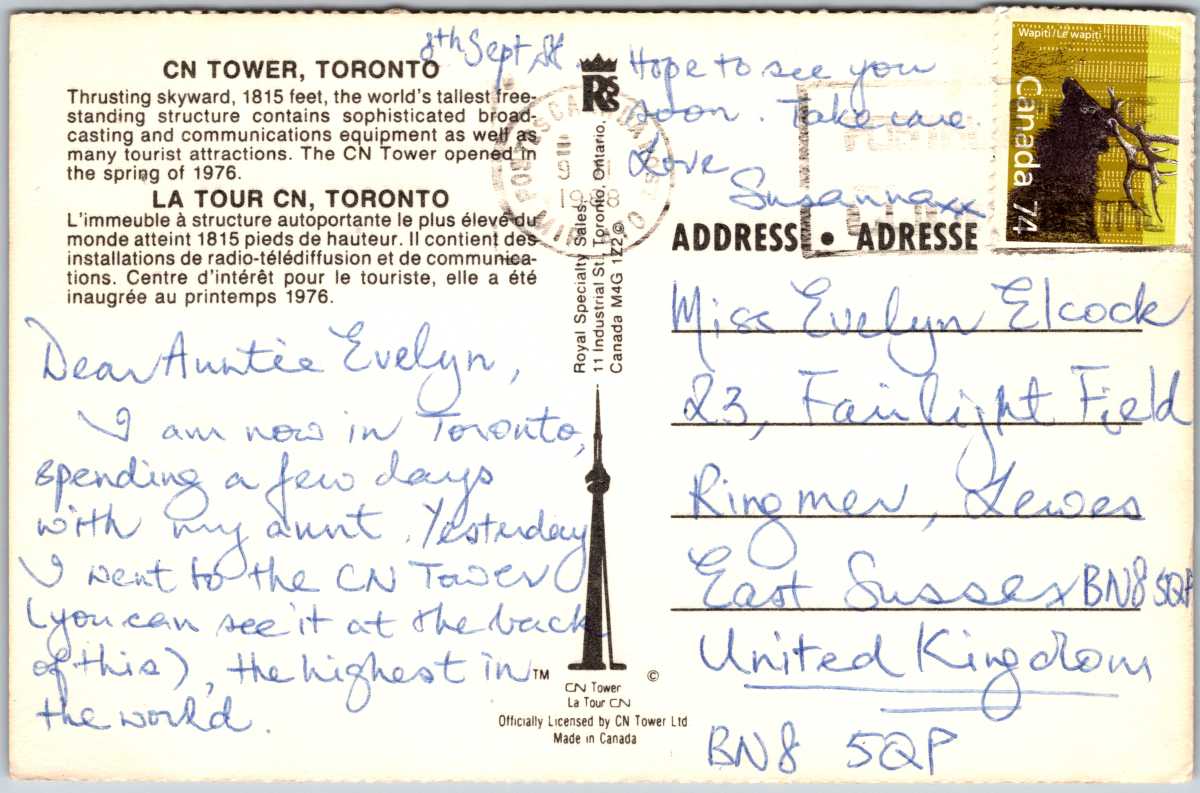 CN TOWER, TORONTO
Thrusting skyward, 1815 feet, the world's tallest free-
standing structure contains sophisticated broad-
casting and communications equipment as well as
many tourist attractions. The CN Tower opened in
the spring of 1976.
LA TOUR CN, TORONTO
L'immeuble à structure autoportante le plus élevé du
monde atteint 1815 pieds de hauteur. Il contient des
installations de radio-télédiffusion et de communica-
tions. Centre d'intérêt pour le touriste, elle a été
inaugrée au printemps 1976.
8th Sept
Dear Auntie Evelyn,
I am now in Toronto,
spending a few days
with my aunt. Yesterday
I went to the CN Tower
(you can see it at the back
of this), the highest in
the world.
Hope to see you
soon. Take care.
Love
Susanna xx
Royal Specialty Sales,
11 Industrial St., Toronto, Ontario,
Canada M4G 1Z2 ©
TM ©
CN Tower
La Tour CN
Officially Licensed by CN Tower Ltd
Made in Canada
Wapiti / Le wapiti
Canada 74
1988
ADDRESS • ADRESSE
Miss Evelyn Elcock
23, Fairlight Field
Ringmer, Lewes
East Sussex BN8 5QP
United Kingdom
BN8 5QP